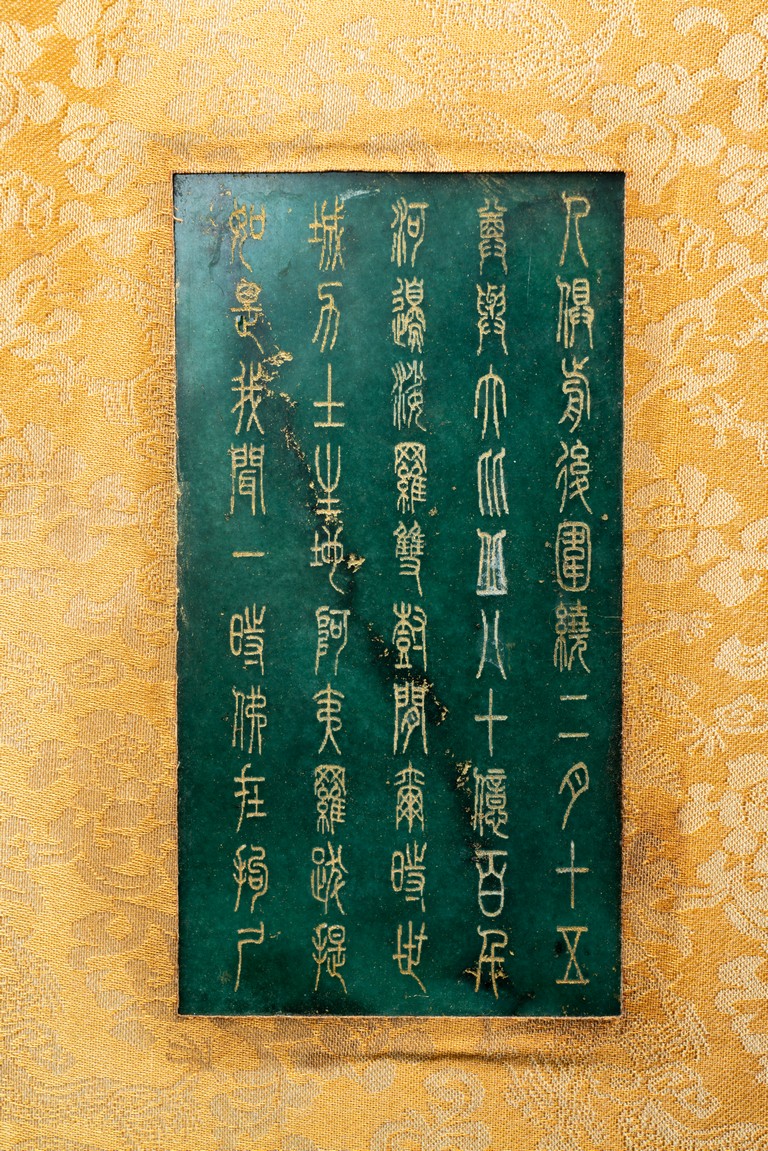 如是我聞一時佛在拘尸
城力士生地阿夷羅跋提
河邊娑羅雙樹間爾時世
尊與大比丘八十億百千
人俱前後圍繞二月十五